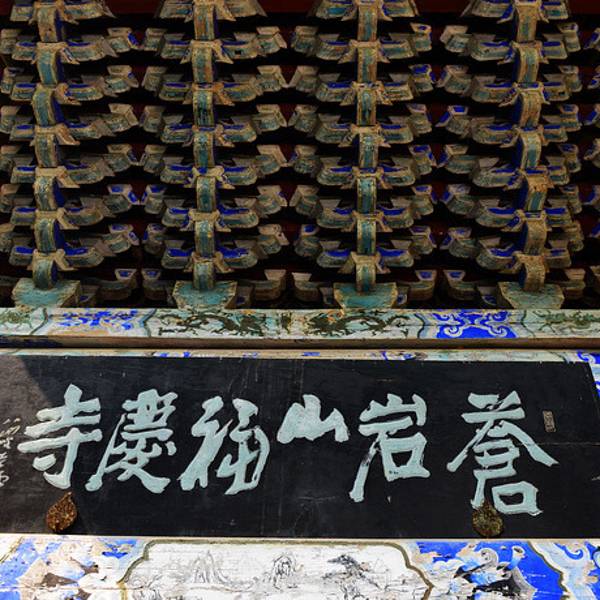 蒼岩山福慶寺